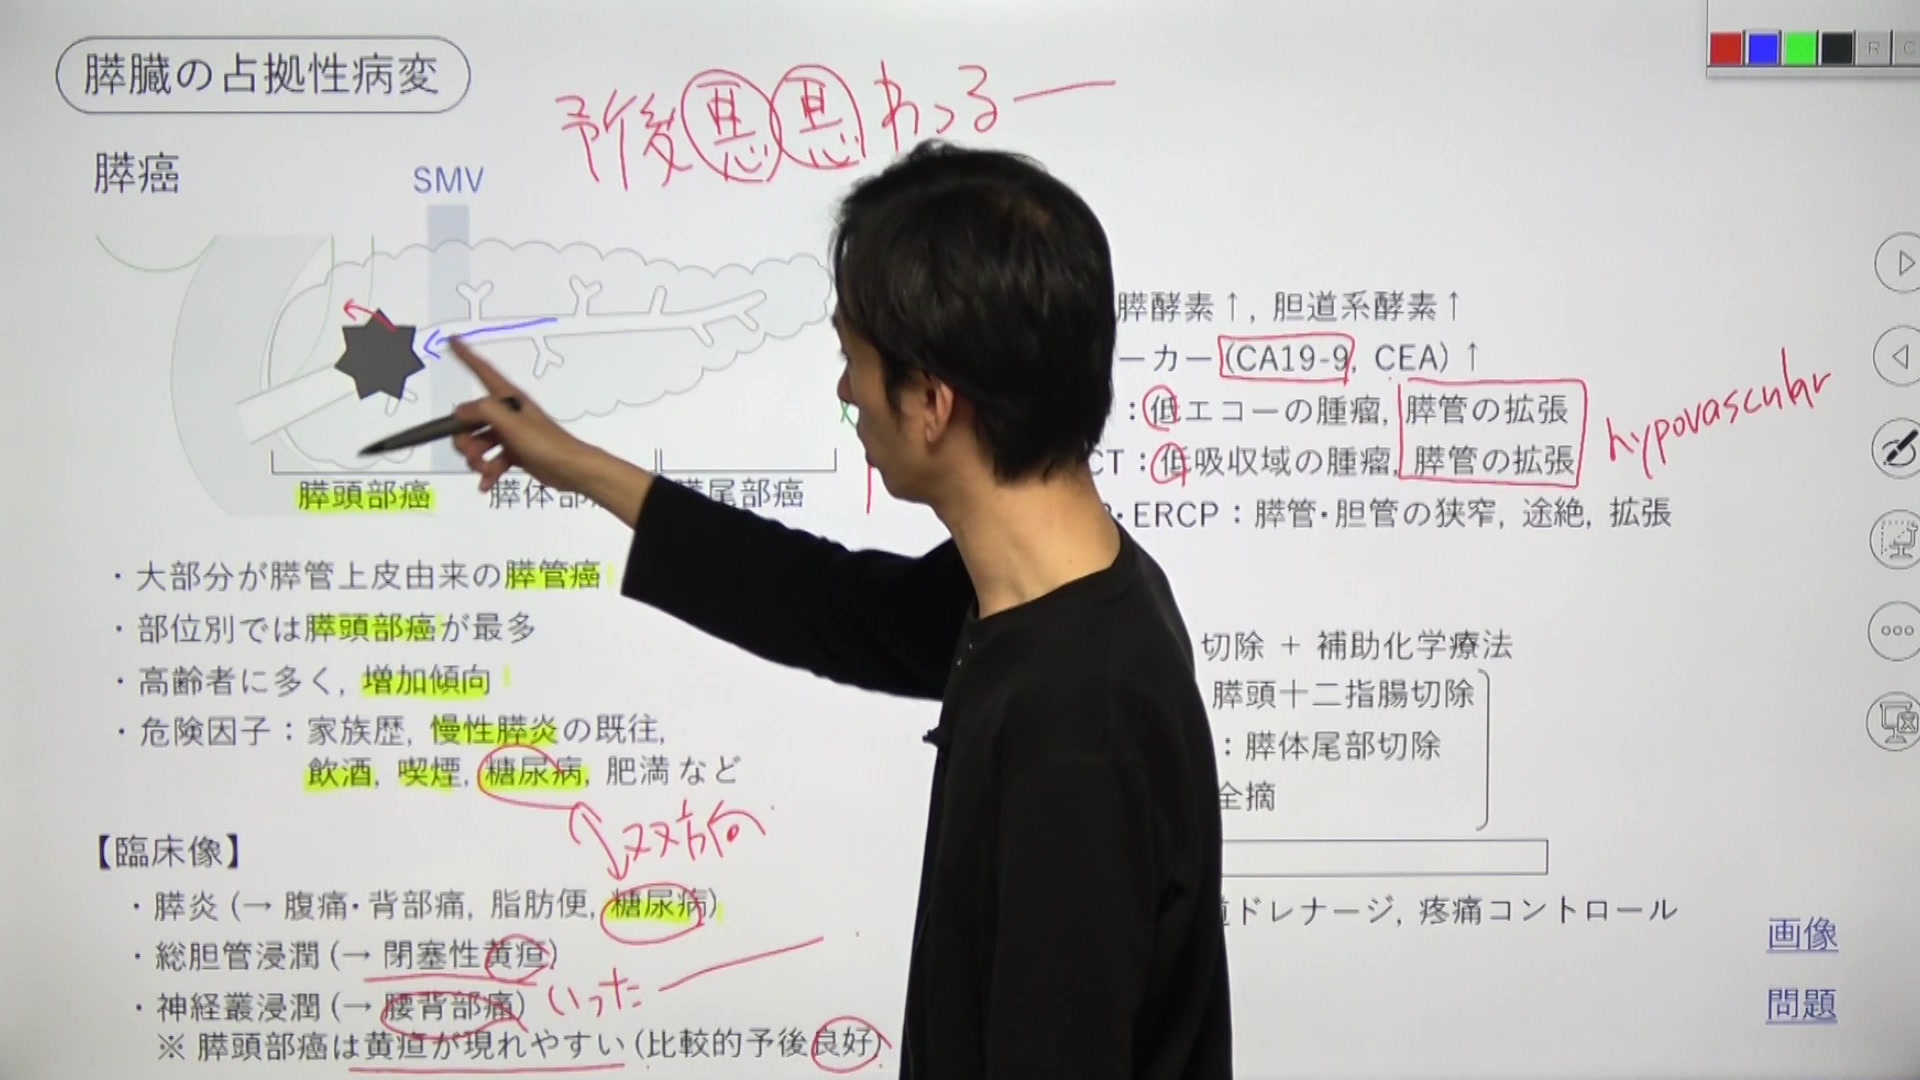 膵臓の占拠性病変
予後悪悪わっるー
膵癌
SMV
膵酵素↑, 胆道系酵素↑
ーカー (CA19-9, CEA) ↑
：低エコーの腫瘤, 膵管の拡張
CT：低吸収域の腫瘤, 膵管の拡張
hypovascular
P・ERCP：膵管・胆管の狭窄, 途絶, 拡張
膵頭部癌
膵体部
膵尾部癌
・大部分が膵管上皮由来の膵管癌
・部位別では膵頭部癌が最多
・高齢者に多く, 増加傾向
・危険因子：家族歴, 慢性膵炎の既往,
飲酒, 喫煙, 糖尿病, 肥満など
双方向
切除 + 補助化学療法
膵頭十二指腸切除
：膵体尾部切除
全摘
【臨床像】
・膵炎 (→ 腹痛・背部痛, 脂肪便, 糖尿病)
・総胆管浸潤 (→ 閉塞性黄疸)
・神経叢浸潤 (→ 腰背部痛)
いったー
※ 膵頭部癌は黄疸が現れやすい (比較的予後良好)
道ドレナージ, 疼痛コントロール
画像
問題
R
C